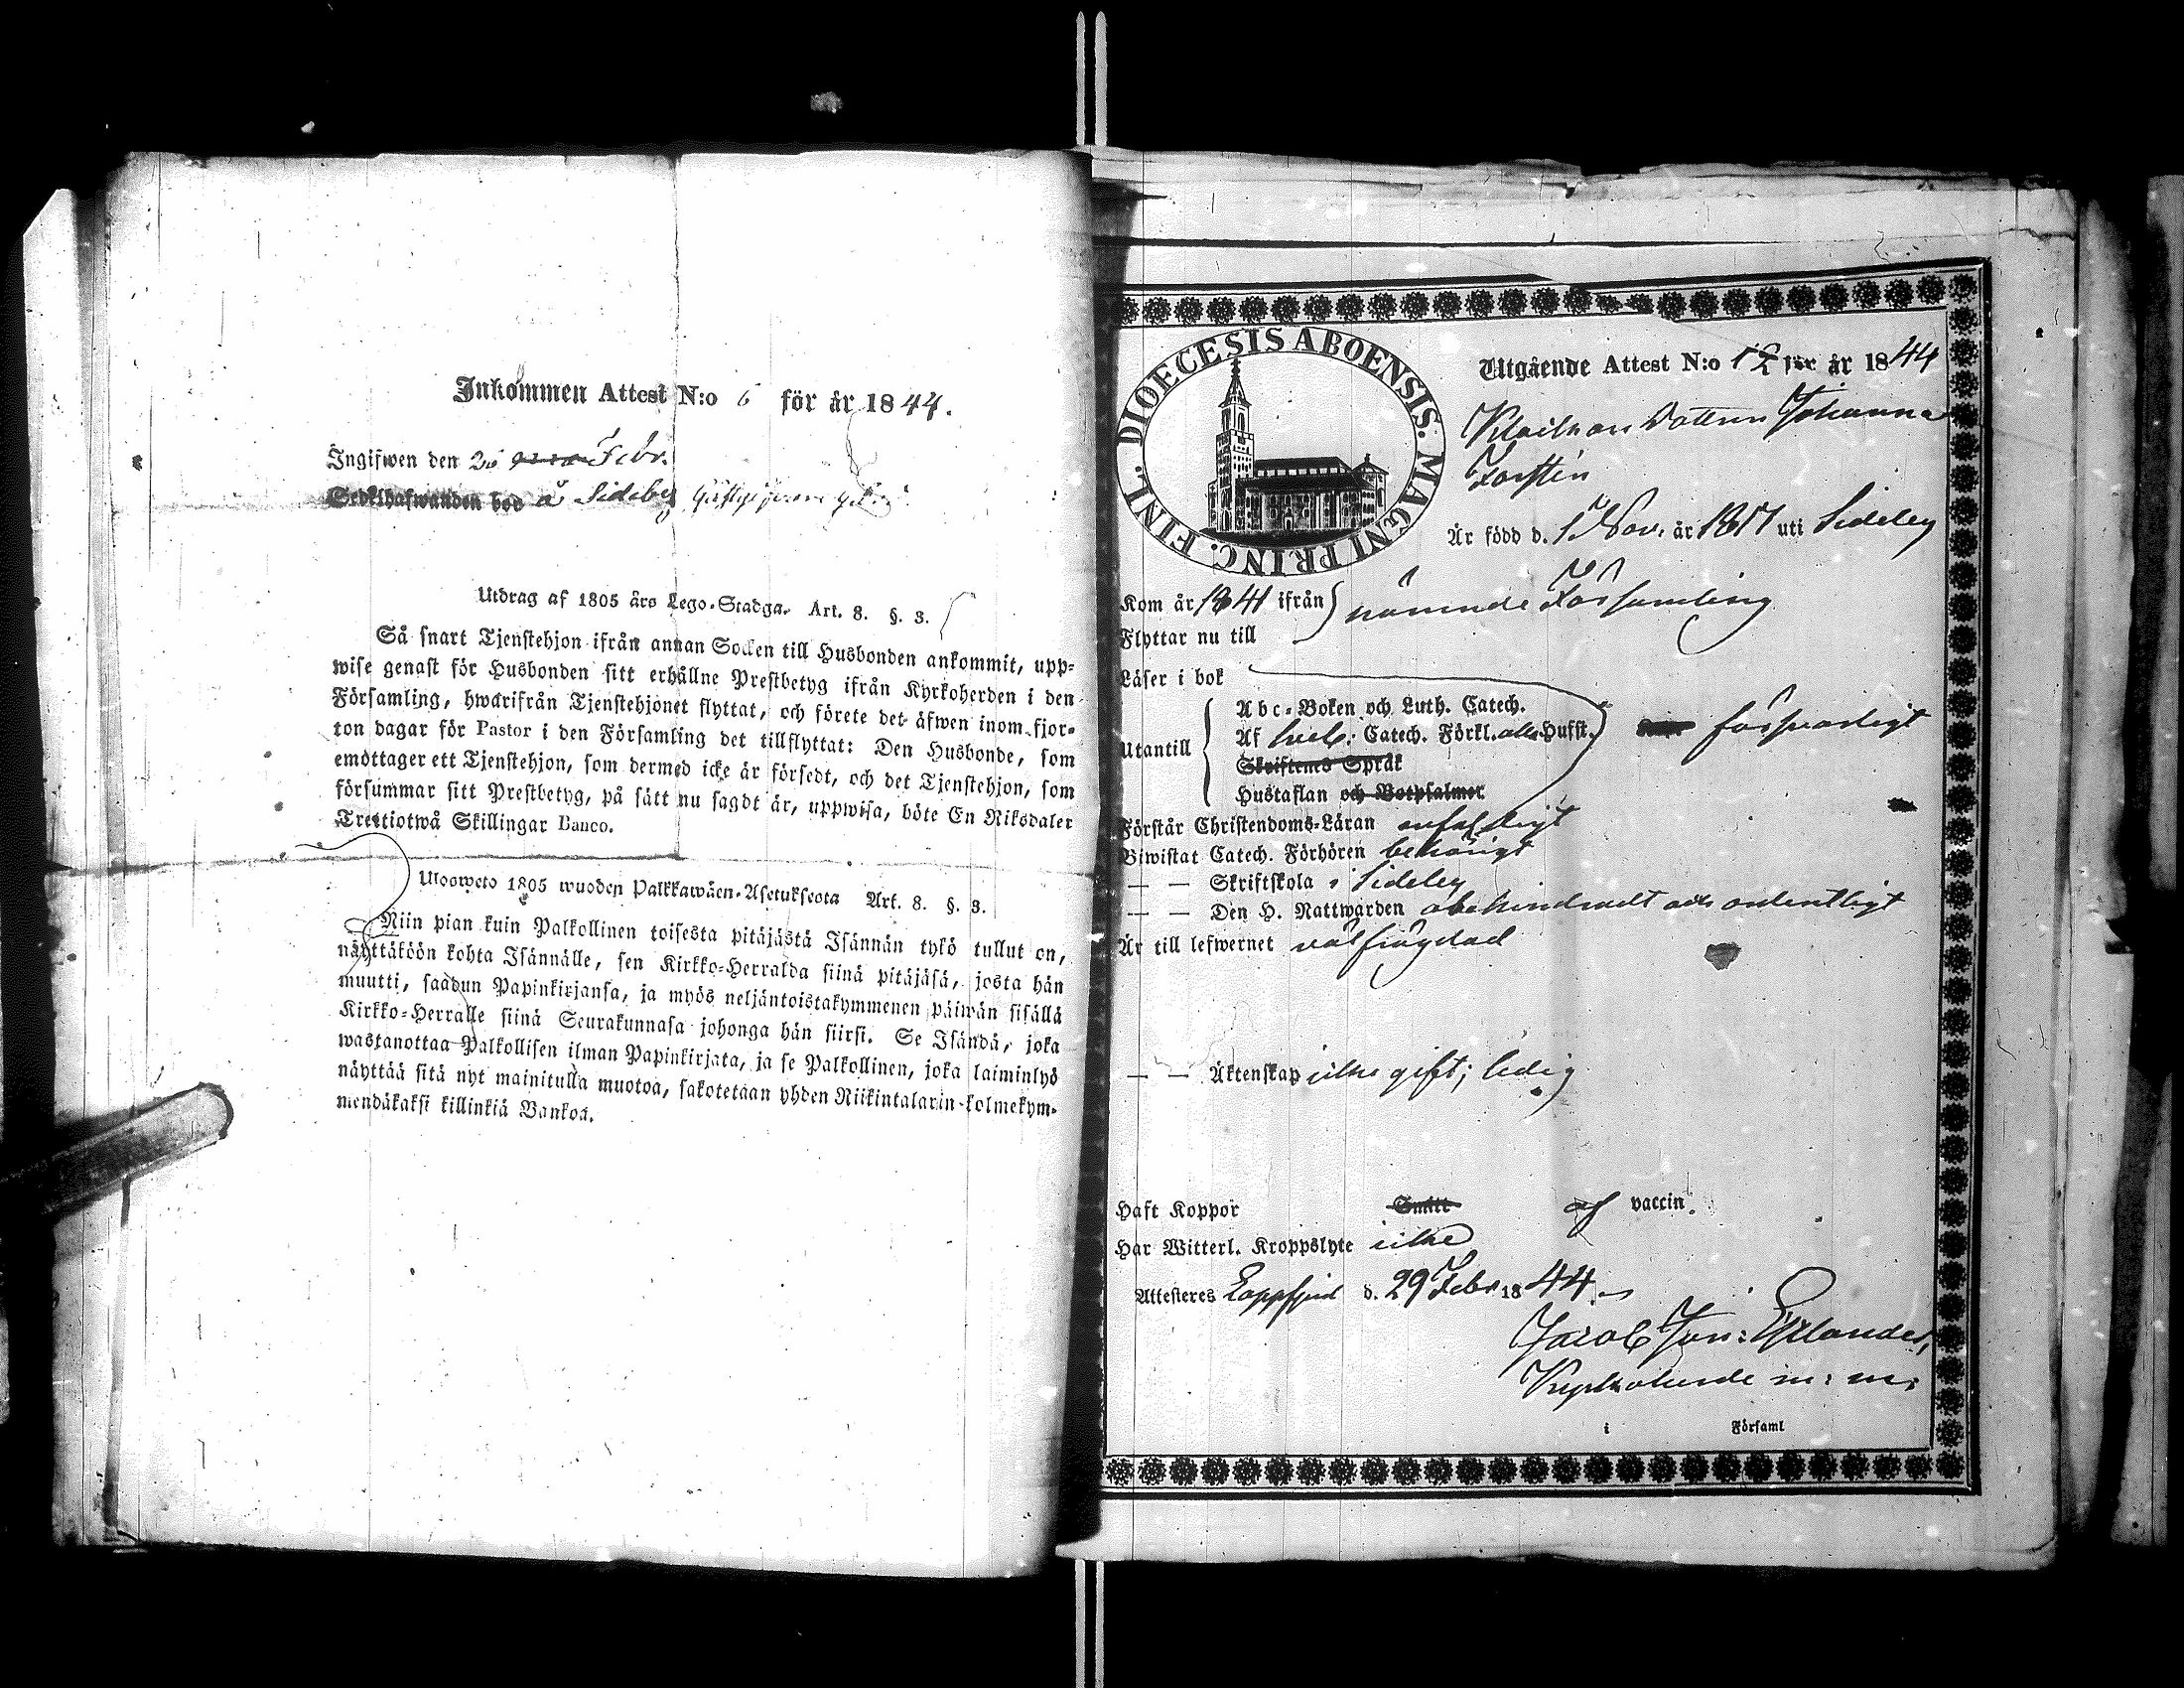 Inkommen Attest N:o 6 för år 1844.
Ingifwen den 26 Febr.
Sedelhafwanden bod å Sideby
Utdrag af 1805 års Lego-Stadga. Art. 8. §. 3.
Så snart Tjenstehjon ifrån annan Socken till Husbonden ankommit, upp-
wise genast för Husbonden sitt erhållne Prestbetyg ifrån Kyrkoherden i den
Församling, hwarifrån Tjenstehjonet flyttat, och förete det äfwen inom fjor-
ton dagar för Pastor i den Församling det tillflyttat: Den Husbonde, som
emottager ett Tjenstehjon, som dermed icke är försedt, och det Tjenstehjon, som
försummar sitt Prestbetyg, på sätt nu sagdt är, uppwisa, böte En Riksdaler
Trettiotwå Skillingar Banco.
Ulosweto 1805 wuoden Palkkawäen-Asetuksesta Art. 8. §. 3.
Niin pian kuin Palkollinen toisesta pitäjästä Isännän tykö tullut on,
näyttäköön kohta Isännälle, sen Kirkko-Herralda siinä pitäjäsä, josta hän
muutti, saadun Papinkirjansa, ja myös neljäntoistakymmenen päiwän sisällä
Kirkko-Herralle siinä Seurakunnasa johonga hän siirsi. Se Isändä, joka
wastanottaa Palkollisen ilman Papinkirjata, ja se Palkollinen, joka laiminlyö
näyttää sitä nyt mainitulla muotoa, sakotetaan yhden Riikintalarin kolmekym-
mendäkaksi killinkiä Bankoa.
DIOECESIS ABOENSIS. MAGNI PRINC. FINL.
Utgående Attest N:o 12 för år 1844
Dottern Johanna
Forstén
Är född d. 1 Nov. år 1817 uti Sideby
Kom år 1841 ifrån } nämnde Församling
Flyttar nu till
Läser i bok
Abc-Boken och Luth. Catech.
Utantill { Af Sveb. Catech. Förkl. alla Hufst. försvarligt
Skriftenes Språk
Hustaflan och Botpsalmer
Förstår Christendoms-Läran enfaldigt
Biwistat Catech. Förhören behörigt
— — Skriftskola i Sideby
— — Den H. Nattwarden obehindradt och ordentligt
Är till lefwernet välfrägdad
— — Äktenskap icke gift; ledig
Haft Koppor Smitt af vaccin.
Har Witterl. Kroppslyte icke
Attesteres Lappfjerd d. 29 Febr 1844.
Jacob Jon: Estlander,
Kyrkoherde m: m:
i Församl